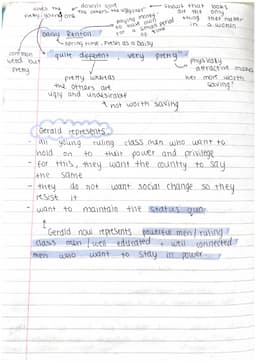 the
pretty
the others are "uglyier"
shows that looks
are the only
thing that matter
in a women
paying money
to have ownt
for a small period
of time
Daisy Renton
spring time, fresh as a Daisy
common
word but
pretty
"quite different, very pretty"
physically
attractive makes
her more worth
saving"
pretty whereas
the others are
ugly and undesirable
not worth saving
Gerald represents
- all young ruling class men who want to
hold on to their power and privilege
- for this, they want the country to stay
the same
- they do not want social change so they
resist it
- want to maintain the status quo
Gerald now represents powerful men / ruling
class men / well educated + well connected
men who want to stay in power.